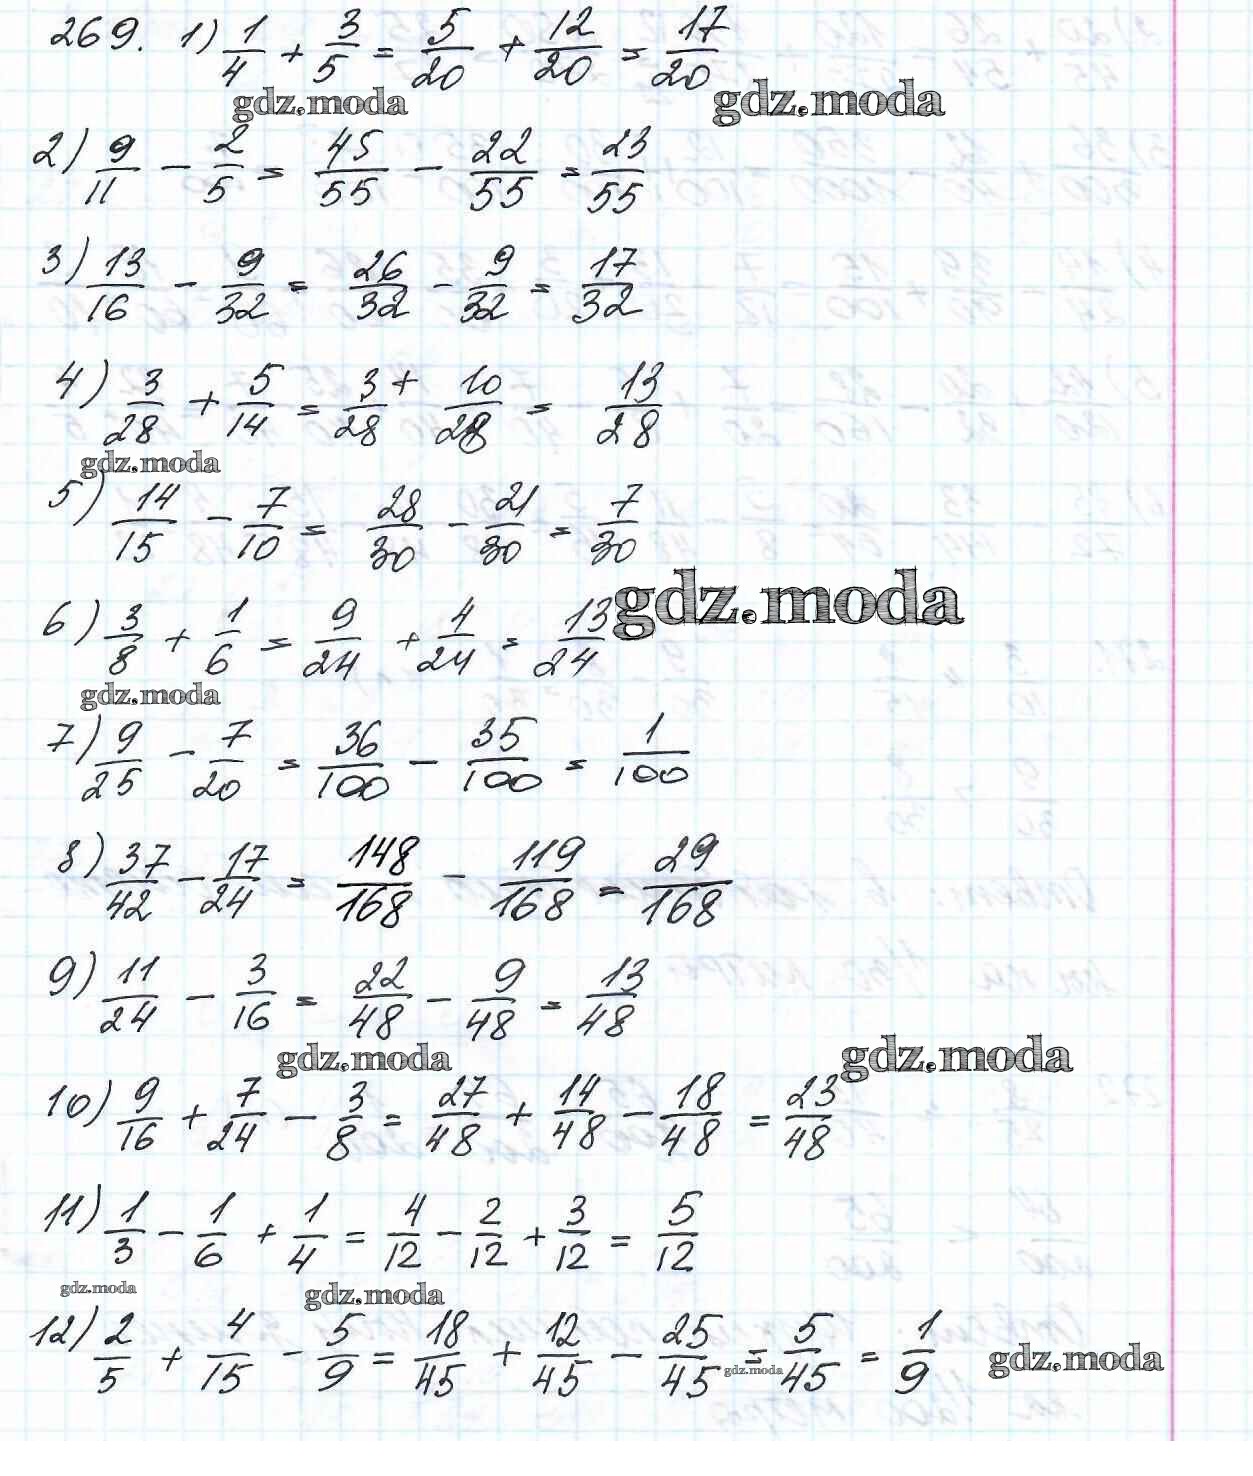 269. 1) 1/4 + 3/5 = 5/20 + 12/20 = 17/20
gdz.moda gdz.moda
2) 9/11 - 2/5 = 45/55 - 22/55 = 23/55
3) 13/16 - 9/32 = 26/32 - 9/32 = 17/32
4) 3/28 + 5/14 = 3/28 + 10/28 = 13/28
gdz.moda
5) 14/15 - 7/10 = 28/30 - 21/30 = 7/30
gdz.moda
6) 3/8 + 1/6 = 9/24 + 4/24 = 13/24
gdz.moda
7) 9/25 - 7/20 = 36/100 - 35/100 = 1/100
8) 37/42 - 17/24 = 148/168 - 119/168 = 29/168
9) 11/24 - 3/16 = 22/48 - 9/48 = 13/48
gdz.moda gdz.moda
10) 9/16 + 7/24 - 3/8 = 27/48 + 14/48 - 18/48 = 23/48
11) 1/3 - 1/6 + 1/4 = 4/12 - 2/12 + 3/12 = 5/12
gdz.moda gdz.moda
12) 2/5 + 4/15 - 5/9 = 18/45 + 12/45 - 25/45 = 5/45 = 1/9
gdz.moda gdz.moda